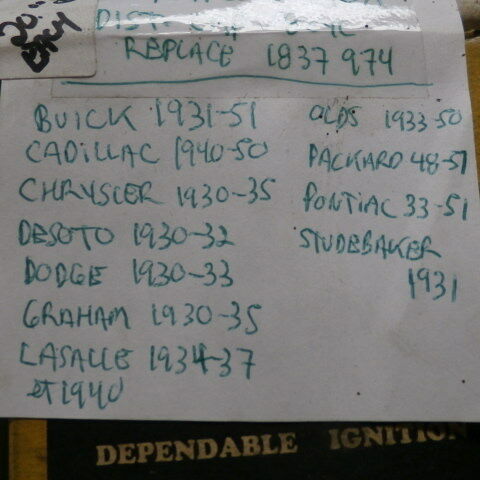 20.00
REPLACE 1837 974
BUICK 1931-51
CADILLAC 1940-50
CHRYSLER 1930-35
DESOTO 1930-32
DODGE 1930-33
GRAHAM 1930-35
LASALLE 1934-37
et 1940
OLDS 1933-50
PACKARD 48-51
PONTIAC 33-51
STUDEBAKER
1931
DEPENDABLE IGNITION